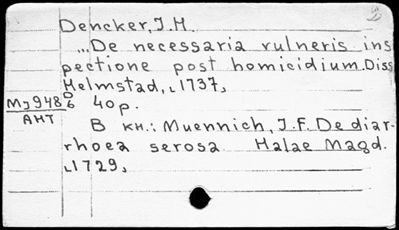 Dencker, J.H.
„De necessaria vulneris ins
pectione post homicidium. Diss
Helmstad, ⌞1737⌟
40 p.
Mj948 6/8
АНТ
В кн.: Muennich, J.F. De diar-
rhoea serosa Halae Magd.
⌞1729⌟